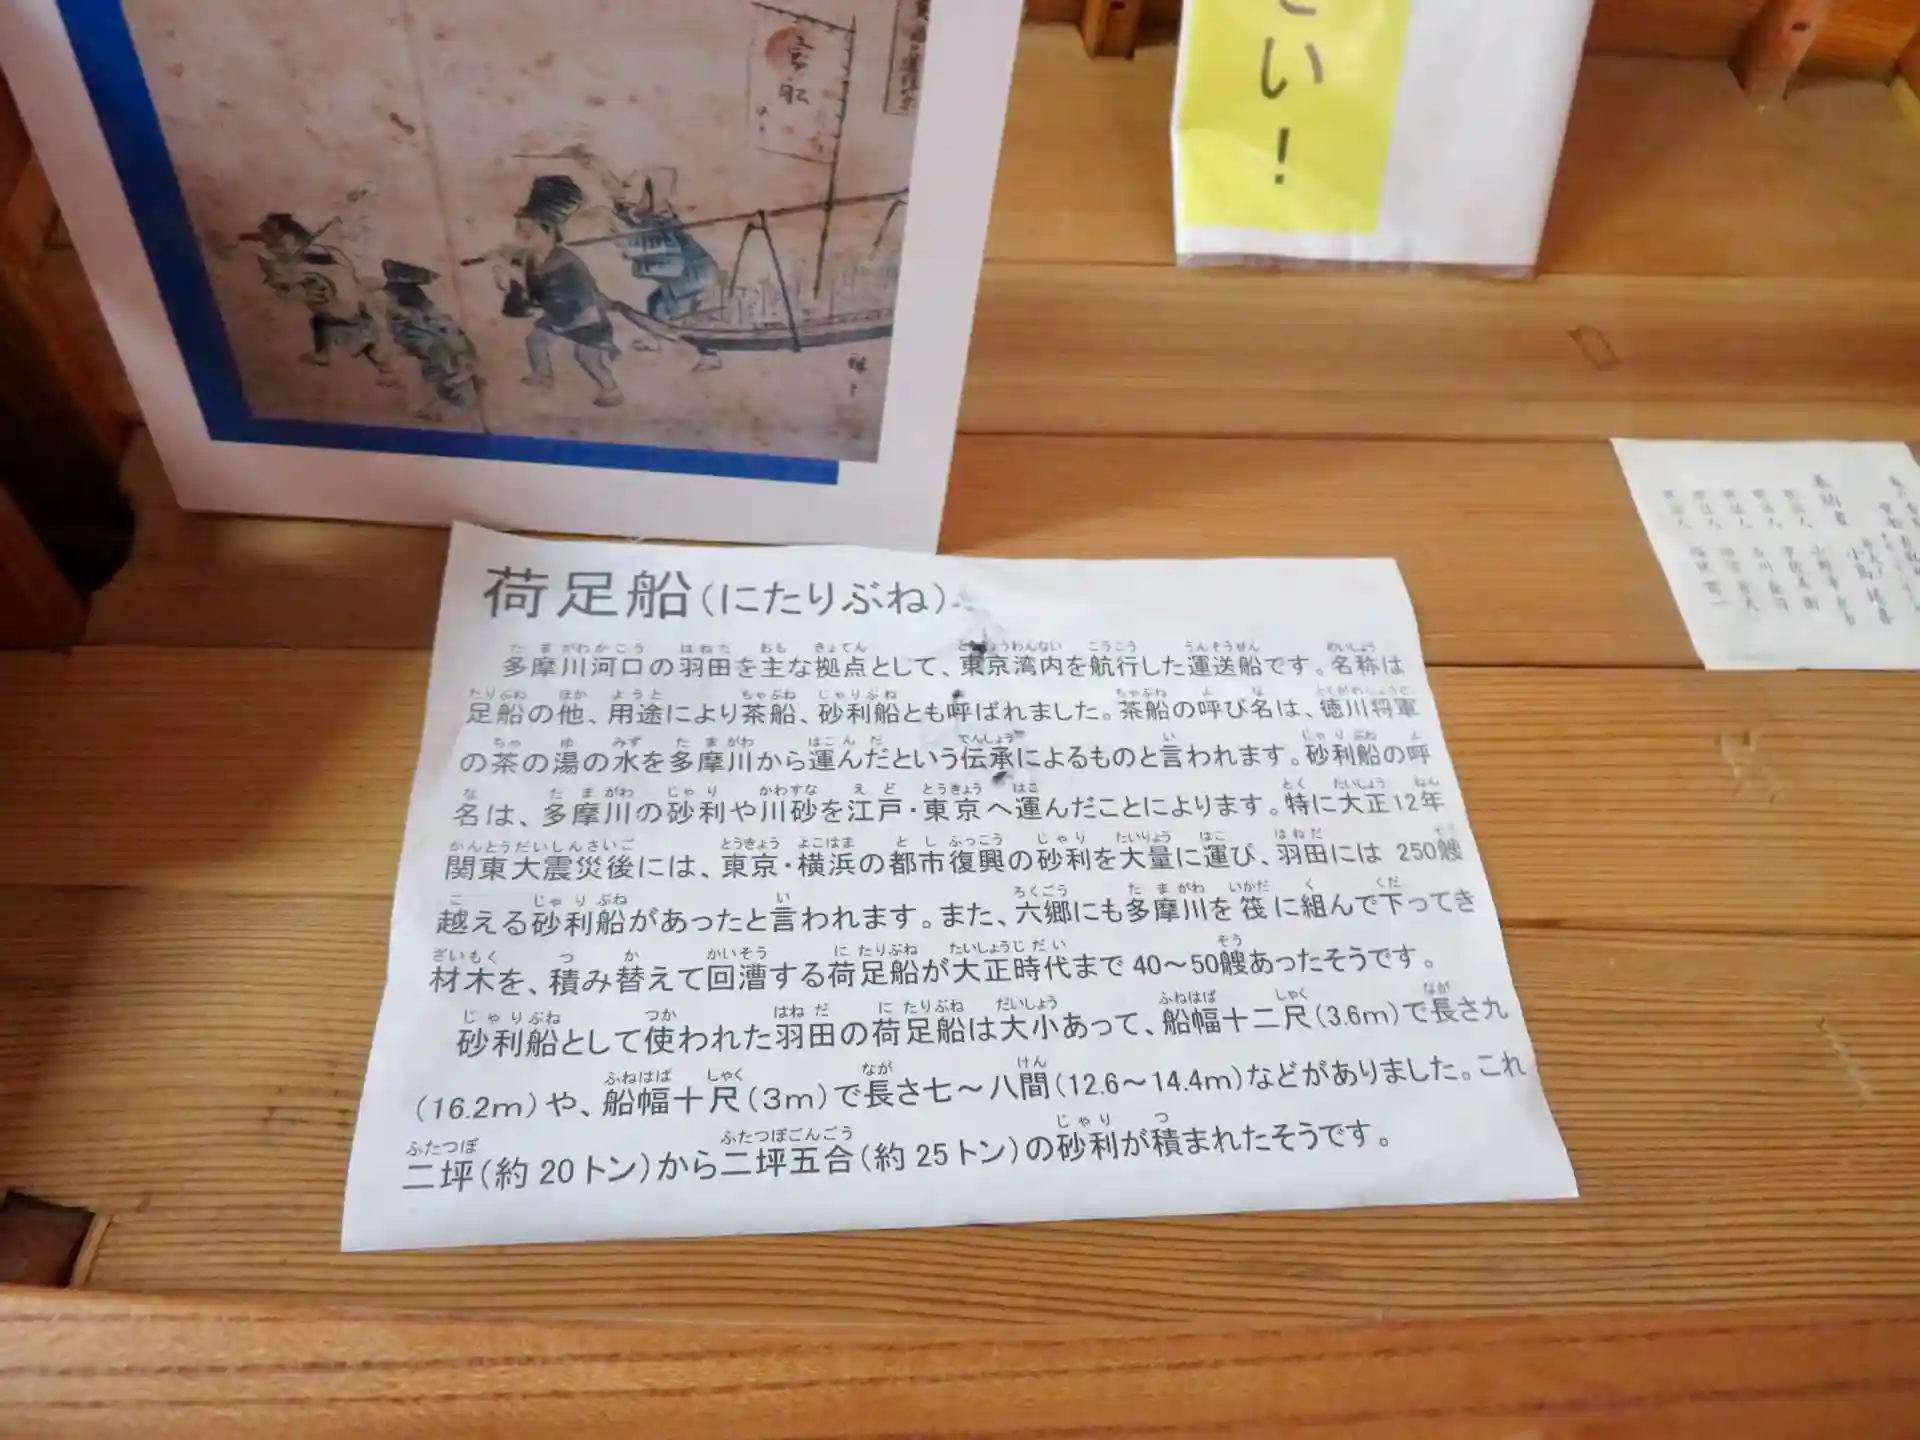 宝船
さい!
荷足船(にたりぶね)
多摩川河口の羽田を主な拠点として、東京湾内を航行した運送船です。名称は
足船の他、用途により茶船、砂利船とも呼ばれました。茶船の呼び名は、徳川将軍
の茶の湯の水を多摩川から運んだという伝承によるものと言われます。砂利船の呼
名は、多摩川の砂利や川砂を江戸・東京へ運んだことによります。特に大正12年
関東大震災後には、東京・横浜の都市復興の砂利を大量に運び、羽田には 250艘
越える砂利船があったと言われます。また、六郷にも多摩川を筏に組んで下ってき
材木を、積み替えて回漕する荷足船が大正時代まで40~50艘あったそうです。
砂利船として使われた羽田の荷足船は大小あって、船幅十二尺(3.6m)で長さ九
(16.2m)や、船幅十尺(3m)で長さ七~八間(12.6~14.4m)などがありました。これ
二坪(約20トン)から二坪五合(約25トン)の砂利が積まれたそうです。
奉納者